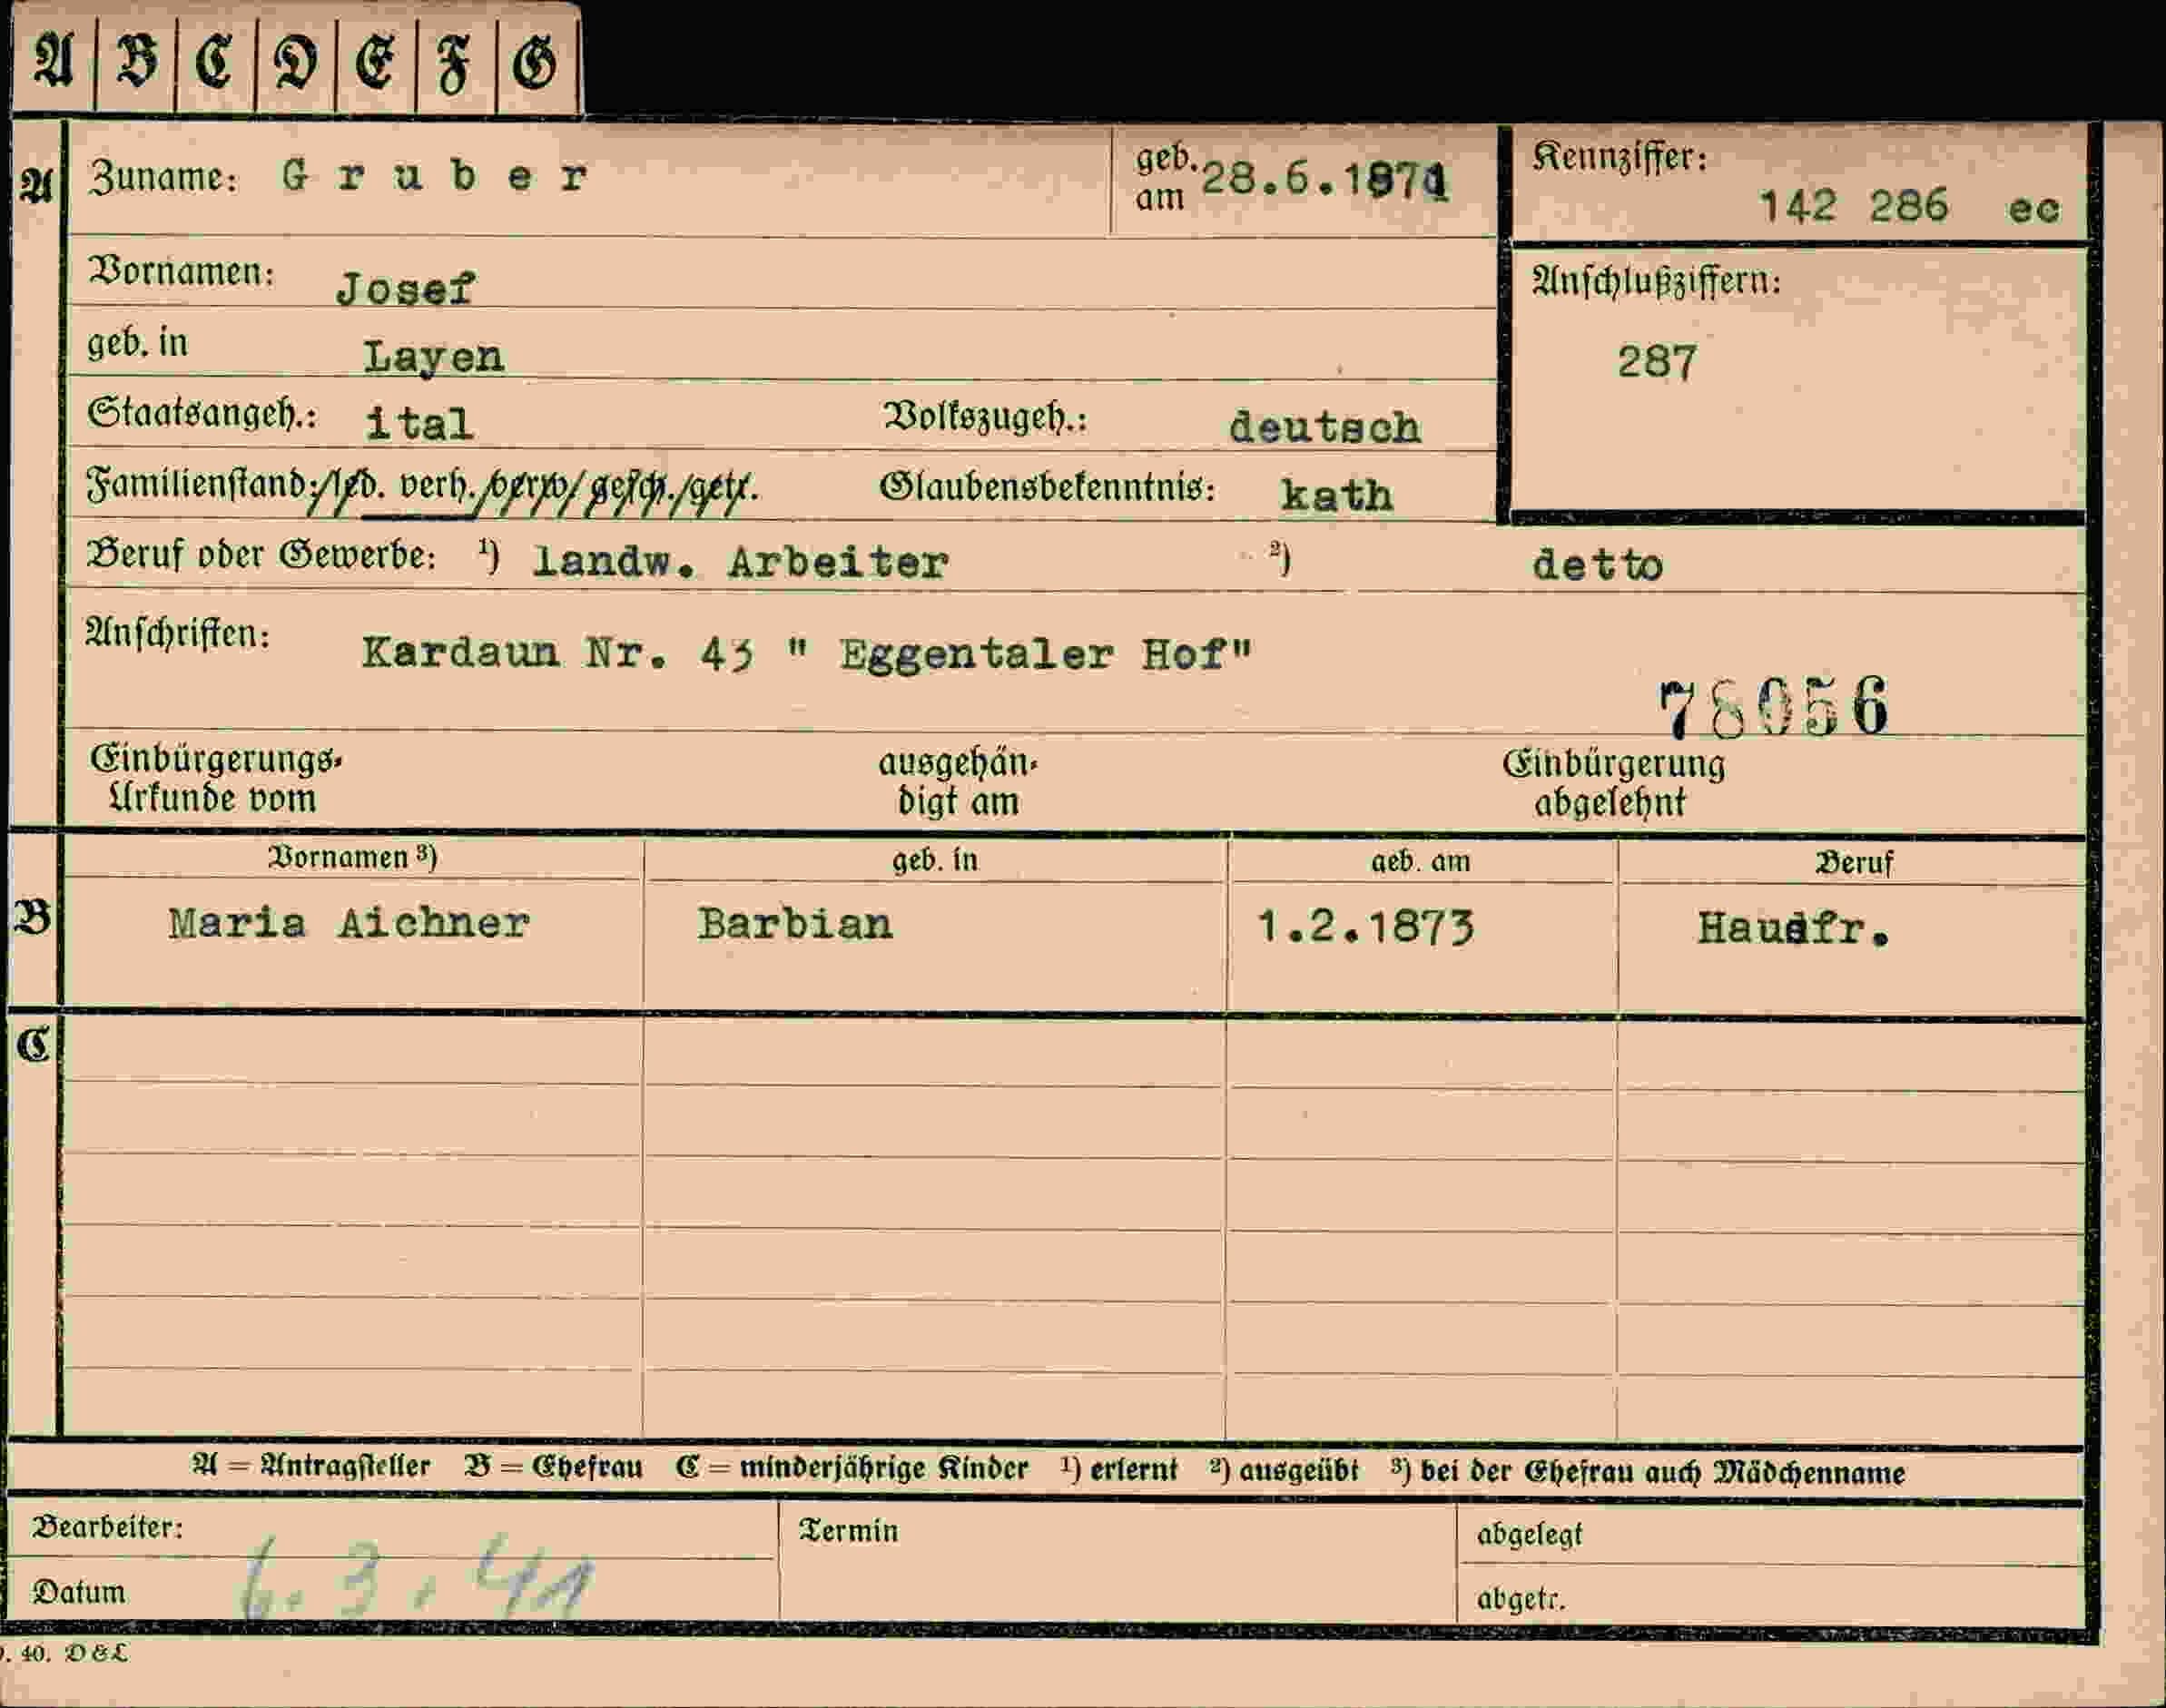 A B C D E F G
A Zuname: Gruber geb. am 28.6.1871 Kennziffer: 142 286 ec
Vornamen: Josef Anschlußziffern:
geb. in Layen 287
Staatsangeh.: ital Volkszugeh.: deutsch
Familienstand: led. verh. verw. gesch. getr. Glaubensbekenntnis: kath
Beruf oder Gewerbe: ¹) landw. Arbeiter ²) detto
Anschriften: Kardaun Nr. 43 " Eggentaler Hof"
78056
Einbürgerungs- ausgehän- Einbürgerung
Urkunde vom digt am abgelehnt
Vornamen ³) geb. in geb. am Beruf
B Maria Aichner Barbian 1.2.1873 Hausfr.
C
A = Antragsteller B = Ehefrau C = minderjährige Kinder ¹) erlernt ²) ausgeübt ³) bei der Ehefrau auch Mädchenname
Bearbeiter: Termin abgelegt
Datum 6.3.41 abgetr.
40. D&L